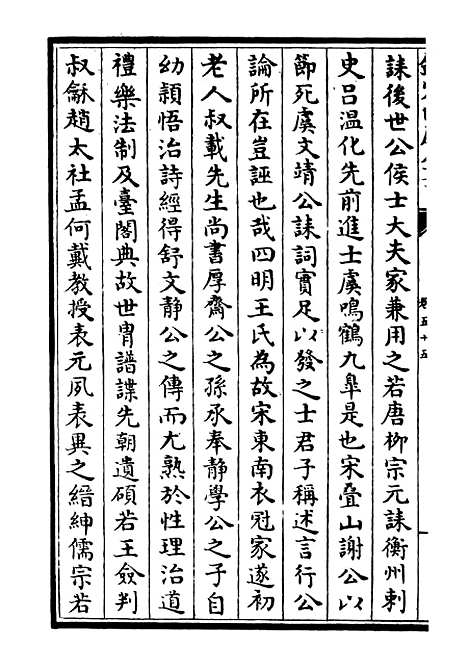 誄後世公侯士大夫家兼用之若唐柳宗元誄衡州刺
史呂温化先前進士虞鳴鶴九臯是也宋疊山謝公以
節死虞文靖公誄詞實足以發之士君子稱述言行公
論所在豈誣也哉四明王氏為故宋東南衣冠家遂初
老人叔載先生尚書厚齋公之孫承奉靜學公之子自
幼穎悟治詩經得舒文静公之傳而尤熟於性理治道
禮樂法制及臺閣典故世胄譜諜先朝遺碩若王僉判
叔龢趙太社孟何戴教授表元夙表異之縉紳儒宗若
卷五十五